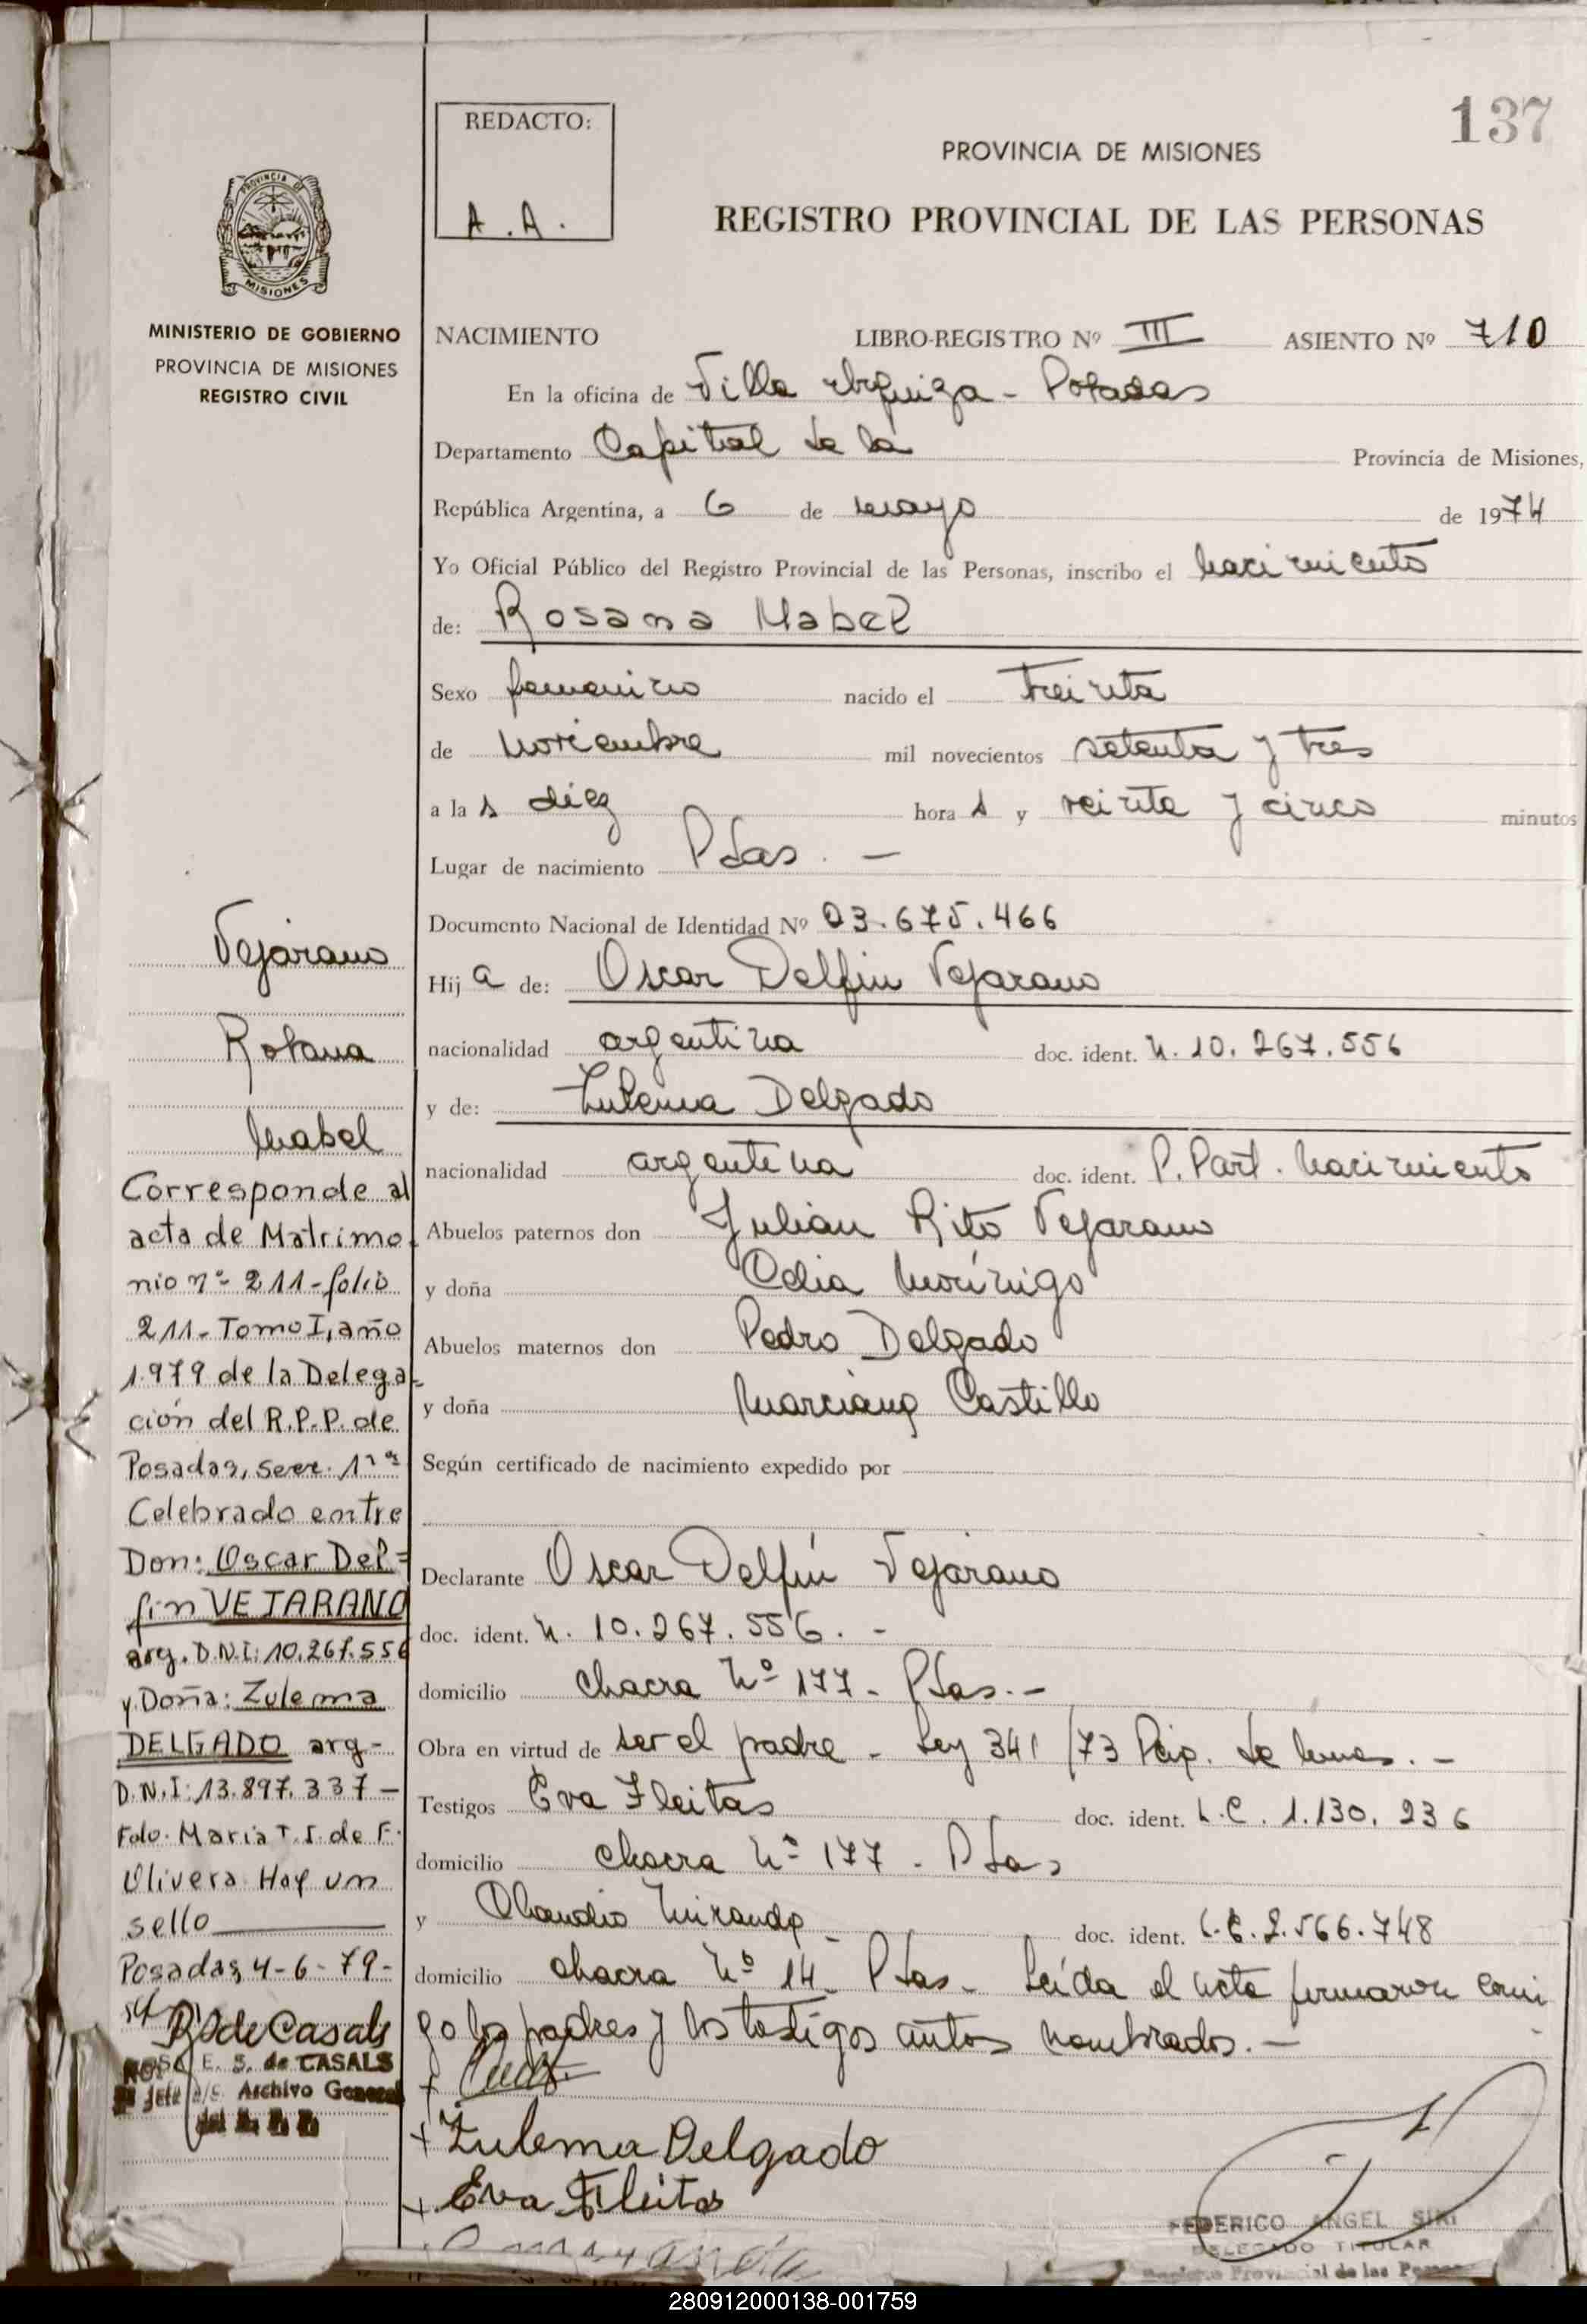 137
REDACTO:
A.A.
PROVINCIA DE MISIONES
REGISTRO PROVINCIAL DE LAS PERSONAS
PROVINCIA DE
MISIONES
MINISTERIO DE GOBIERNO
PROVINCIA DE MISIONES
REGISTRO CIVIL
NACIMIENTO LIBRO-REGISTRO Nº III ASIENTO Nº 710
En la oficina de Villa Urquiza - Posadas
Departamento Capital de la Provincia de Misiones,
República Argentina, a 6 de mayo de 1974
Yo Oficial Público del Registro Provincial de las Personas, inscribo el nacimiento
de: Rosana Mabel
Sexo femenino nacido el treinta
de noviembre mil novecientos setenta y tres
a la s diez hora s y veinte y cinco minutos
Lugar de nacimiento Pdas. -
Documento Nacional de Identidad Nº 23.675.466
Hij a de: Oscar Delfin Vejarano
nacionalidad argentina doc. ident. n. 10.267.556
y de: Zulema Delgado
nacionalidad argentina doc. ident. P. Part. nacimiento
Abuelos paternos don Julian Rito Vejarano
y doña Celia Morínigo
Abuelos maternos don Pedro Delgado
y doña Marciana Castillo
Según certificado de nacimiento expedido por
Declarante Oscar Delfín Vejarano
doc. ident. n. 10.267.556. -
domicilio chacra Nº 177 - Pdas. -
Obra en virtud de ser el padre - Ley 341/73 -
Testigos Eva Fleitas doc. ident. L.C. 1.130.236
domicilio chacra Nº 177 - Pdas
y Claudio Miranda doc. ident. 2.566.748
domicilio chacra Nº 14 Pdas - Leída el acta firmaron conmi
go los padres y los testigos antes nombrados. -
Zulema Delgado
Eva Fleitas
Miranda
FEDERICO ANGEL SIRI
DELEGADO TITULAR
Registro Provincial de las Personas
Vejarano
Rosana
Mabel
Corresponde al
acta de Matrimo
nio nº 211 - folio
211 - Tomo I, año
1979 de la Delega-
ción del R.P.P. de
Posadas, secc. 1ra
Celebrado entre
Don: Oscar Del=
fin VEJARANO
arg. D.N.I: 10.267.556
y Doña: Zulema
DELGADO arg-
D.N.I: 13.897.337 -
Fdo. Maria T. I. de F.
Olivera Hay un
sello
Posadas, 4-6-79-
R S de Casals
ROSA E. S. de CASALS
Jefe a/c. Archivo General
280912000138-001759